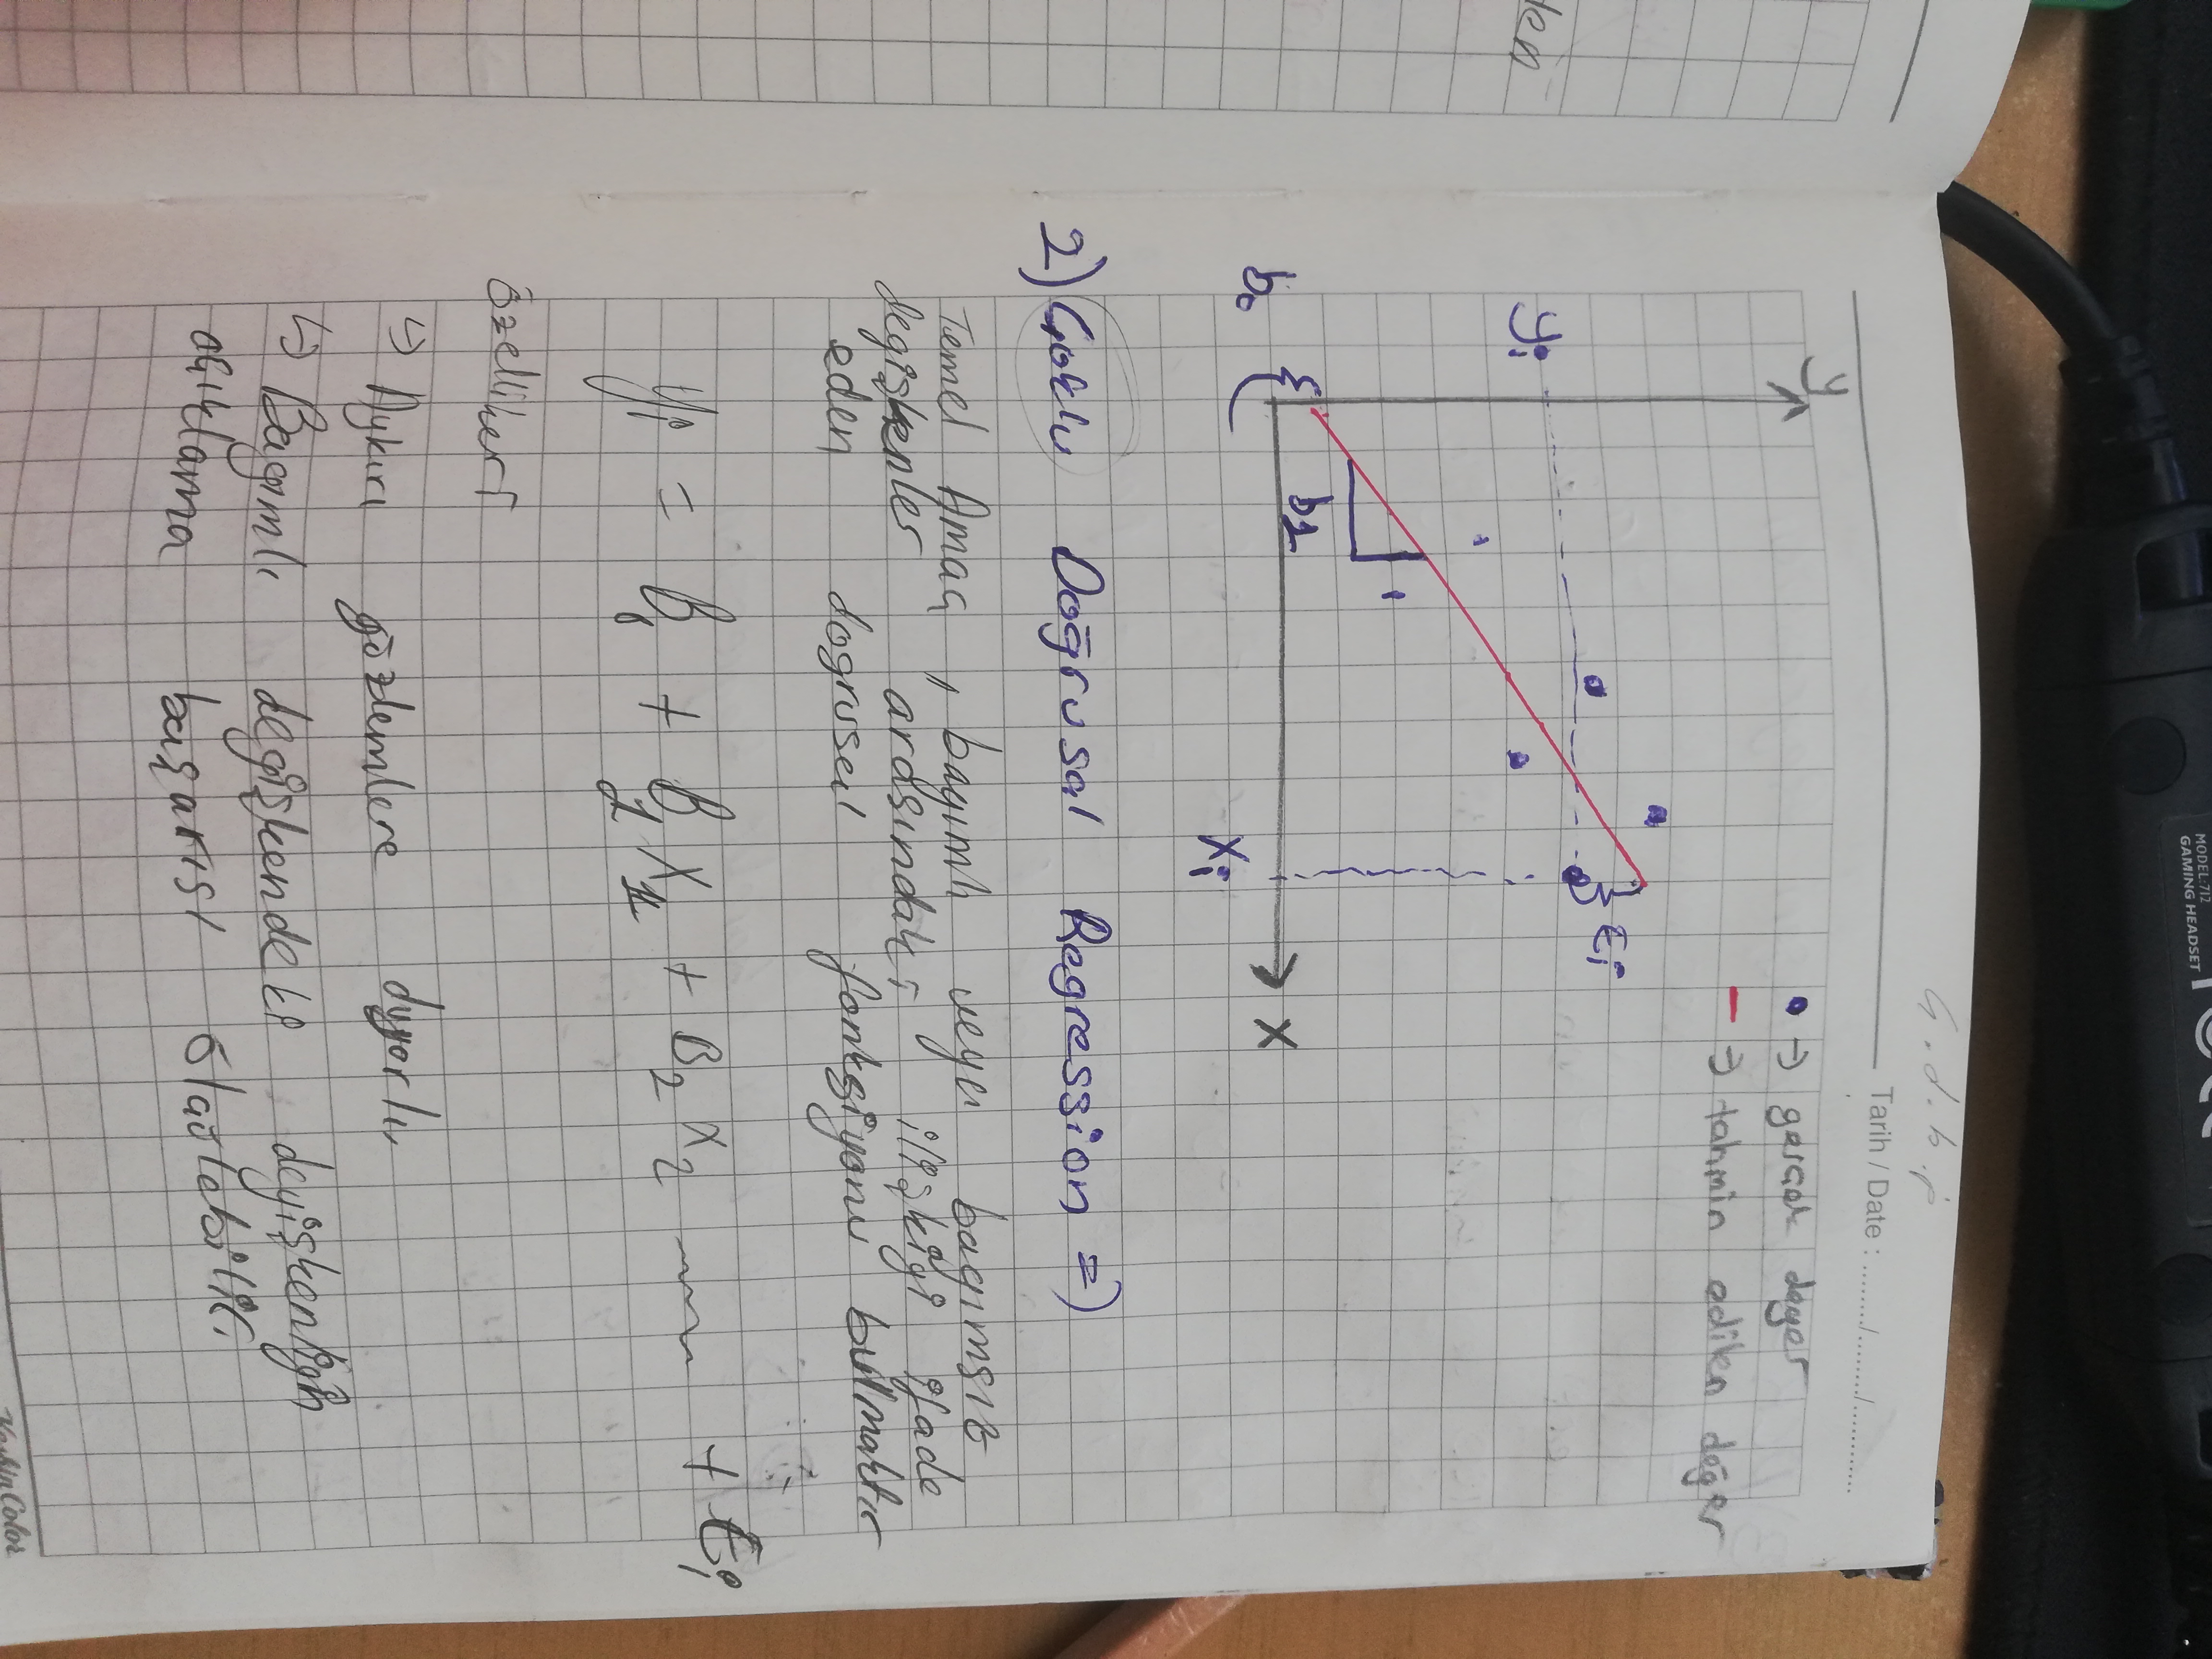 MODEL:712
GAMING HEADSET
G.d.b.p
Tarih / Date : ......../......../............
y
• → gerçek deger
— → tahmin edilen değer
Ei
yi
den
b1
b0
X
Xi
2) Çoklu Doğrusal Regression =)
Temel Amaç , bagımlı veya bagımsız
degişkenler arasındaki ilişkiyi ifade
eden dogrusal fonksiyonu bulmaktır
yi = B0 + B1 X1 + B2 X2 ﹏﹏ + Ei
özellikeri
↳ Aykırı gözlemlere duyarlı,
↳ Bagımlı degişkendeki deyişkenligin
açıklama başarısı ölaülebilir.
KeskinColor